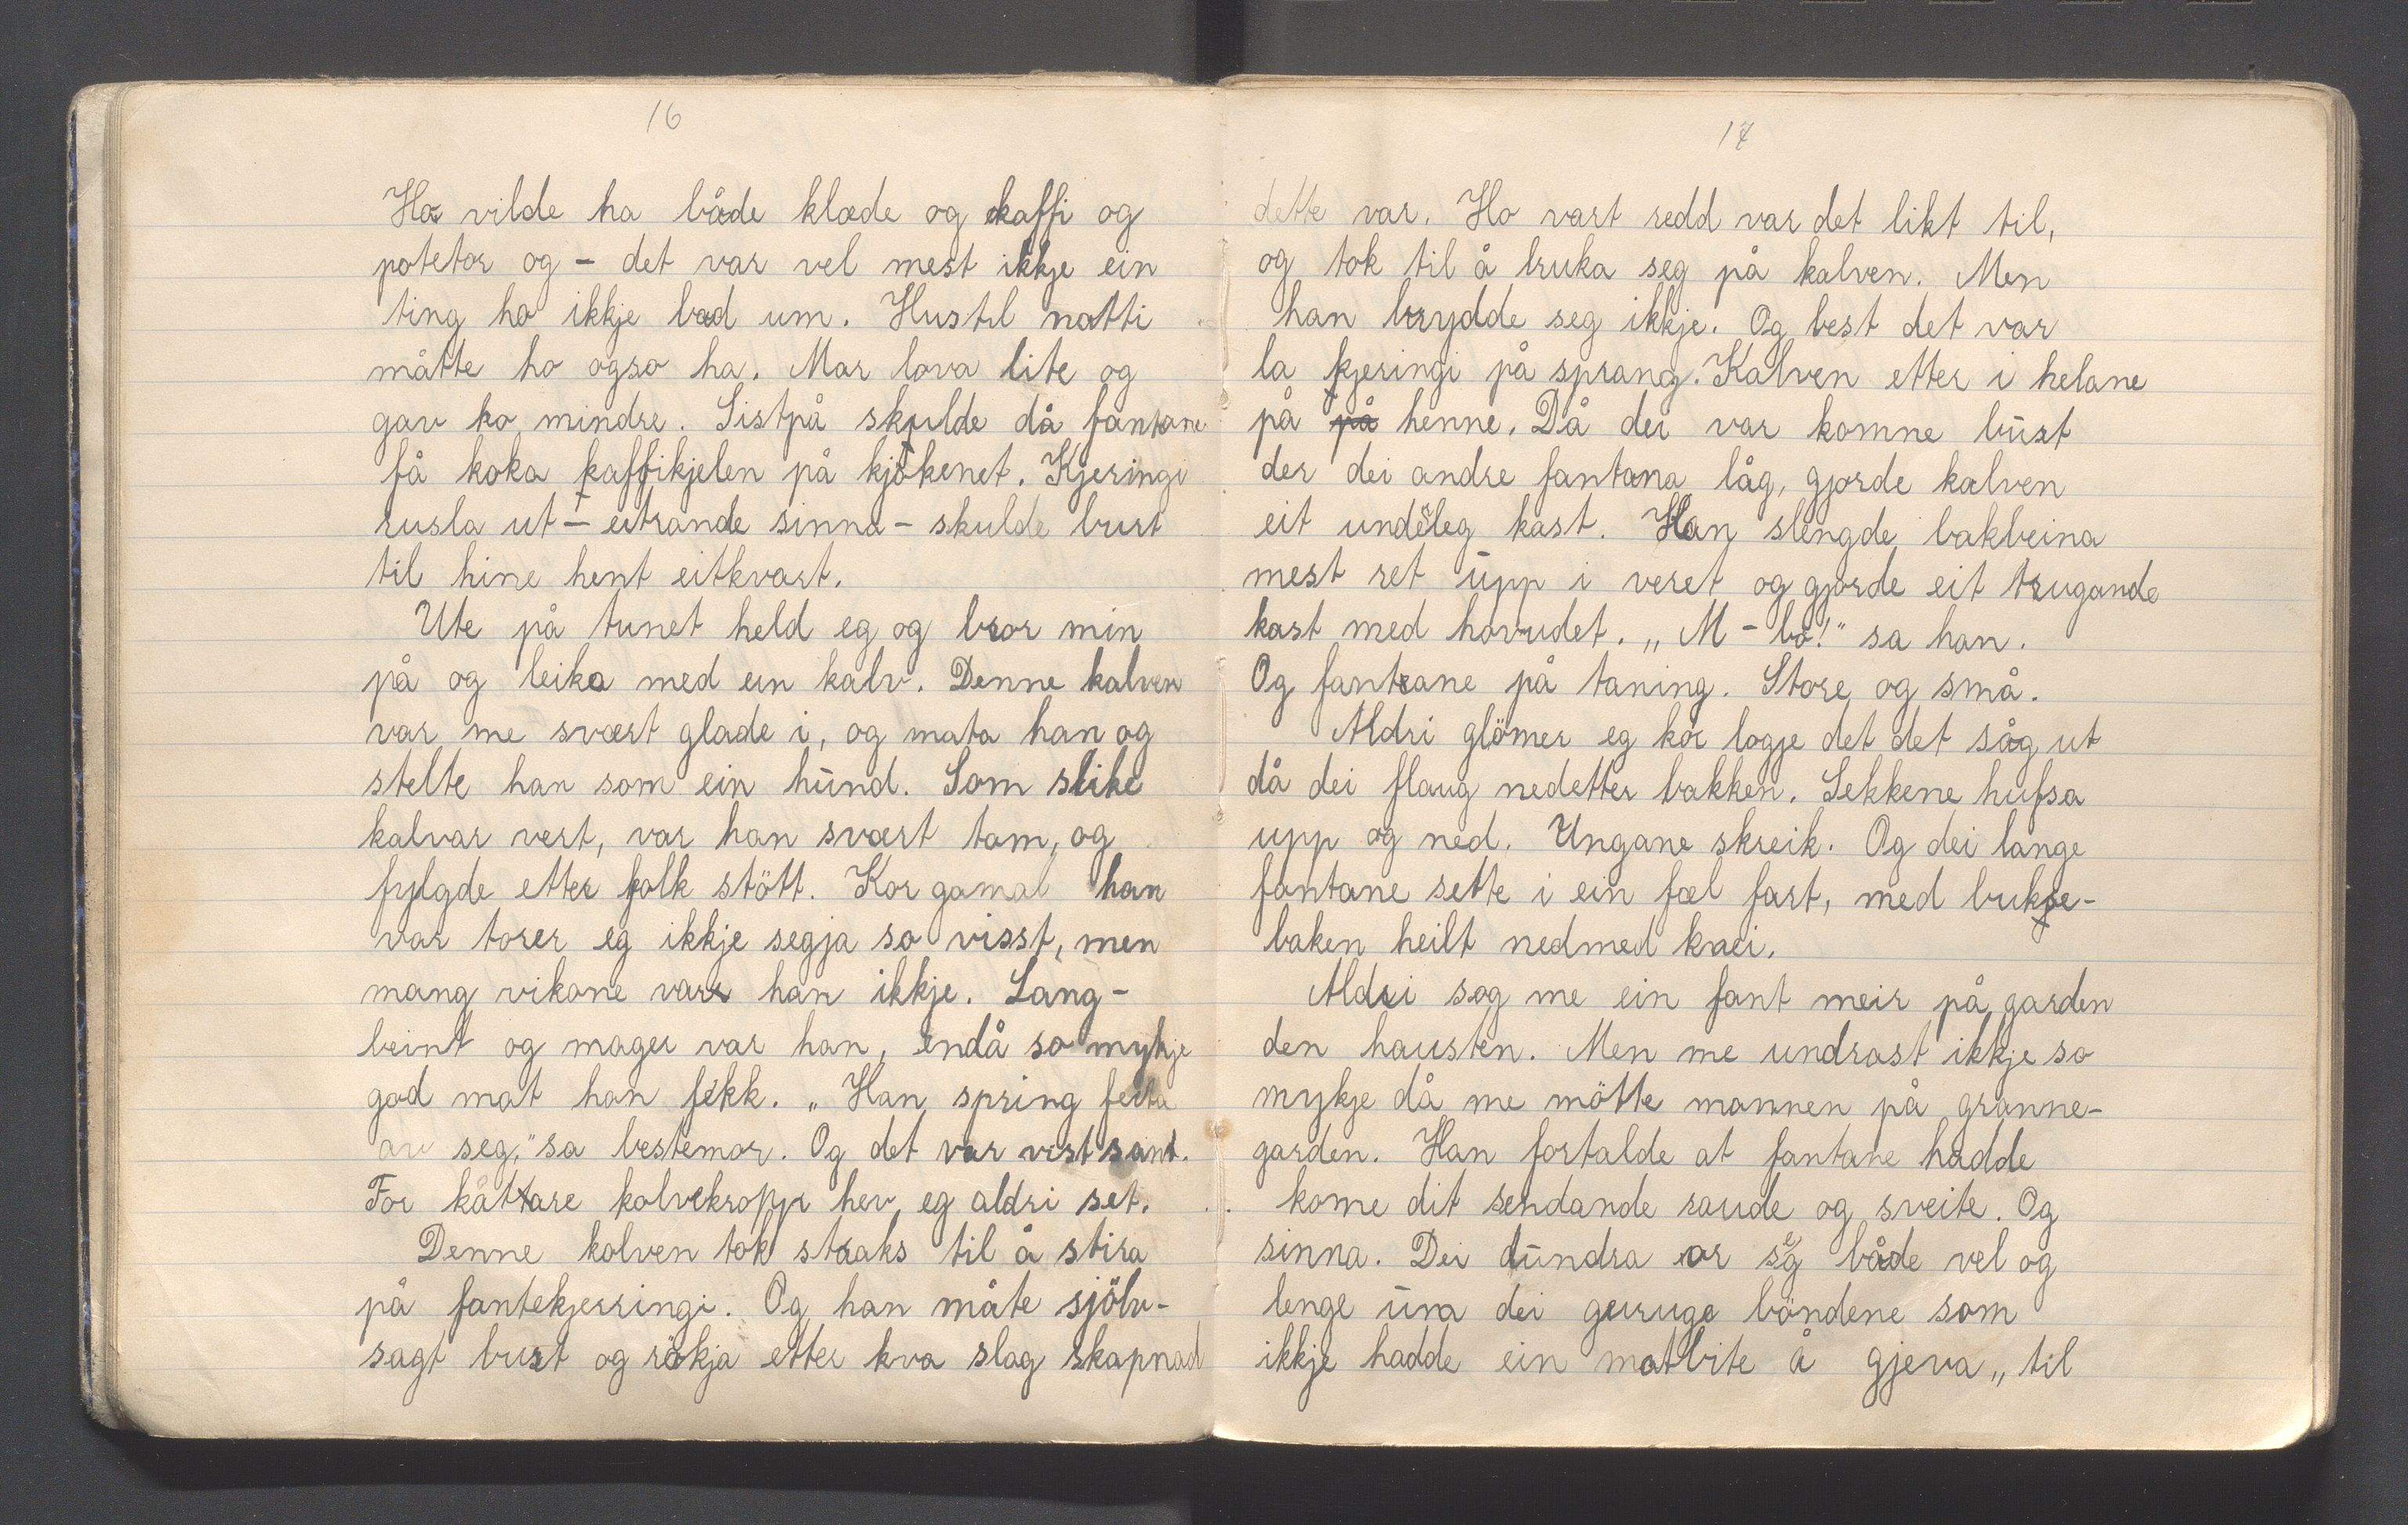 16
Ho vilde ha både klæde og kaffi og
potetor og - det var vel mest ikkje ein
ting ho ikkje bad um. Hustil natti
måtte ho ogso ha. Mor lova lite og
gav ho mindre. Sistpå skulde då fantane
få koka kaffikjelen på kjøkenet. Kjeringi
rusla ut - eitrande sinna - skulde burt
til hine hent eitkvart.
Ute på tunet held eg og bror min
på og leika med ein kalv. Denne kalven
var me svært glade i, og mata han og
stelte han som ein hund. Som slike
kalvar vert, var han svært tam, og
fylgde etter folk stött. Kor gamal han
var torer eg ikkje segja so visst, men
mang vikone var han ikkje. Lang-
beint og mager var han, endå so mykje
god mat han fekk. „Han spring feita
av seg," sa bestemor. Og det var vist sant.
For kåttare kalvekropp hev eg aldri set.
Denne kalven tok straks til å stira
på fantekjerringi. Og han måte sjölv-
sagt burt og rökja etter kva slag skapnad
17
dette var. Ho vart redd var det likt til,
og tok til å bruka seg på kalven. Men
han brydde seg ikkje. Og best det var
la kjeringi på sprang. Kalven etter i helane
på på henne. Då dei var komne burt
der dei andre fantana låg, gjorde kalven
eit undeleg kast. Han slengde bakbeina
mest ret upp i veret og gjorde eit trugande
kast med hovudet. „M - bö!" sa han.
Og fantane på taning. Store og små.
Aldri glömer eg kor logje det det såg ut
då dei flaug nedetter bakken. Sekkene hufsa
upp og ned. Ungane skreik. Og dei lange
fantane sette i ein fæl fart, med bukse-
baken heilt nedmed knei.
Aldri sog me ein fant meir på garden
den hausten. Men me undrast ikkje so
mykje då me mötte mannen på granne-
garden. Han fortalde at fantane hadde
kome dit sendande raude og sveite. Og
sinna. Dei dundra or seg både vel og
lenge um dei geruge böndene som
ikkje hadde ein matbite å gjeva „til